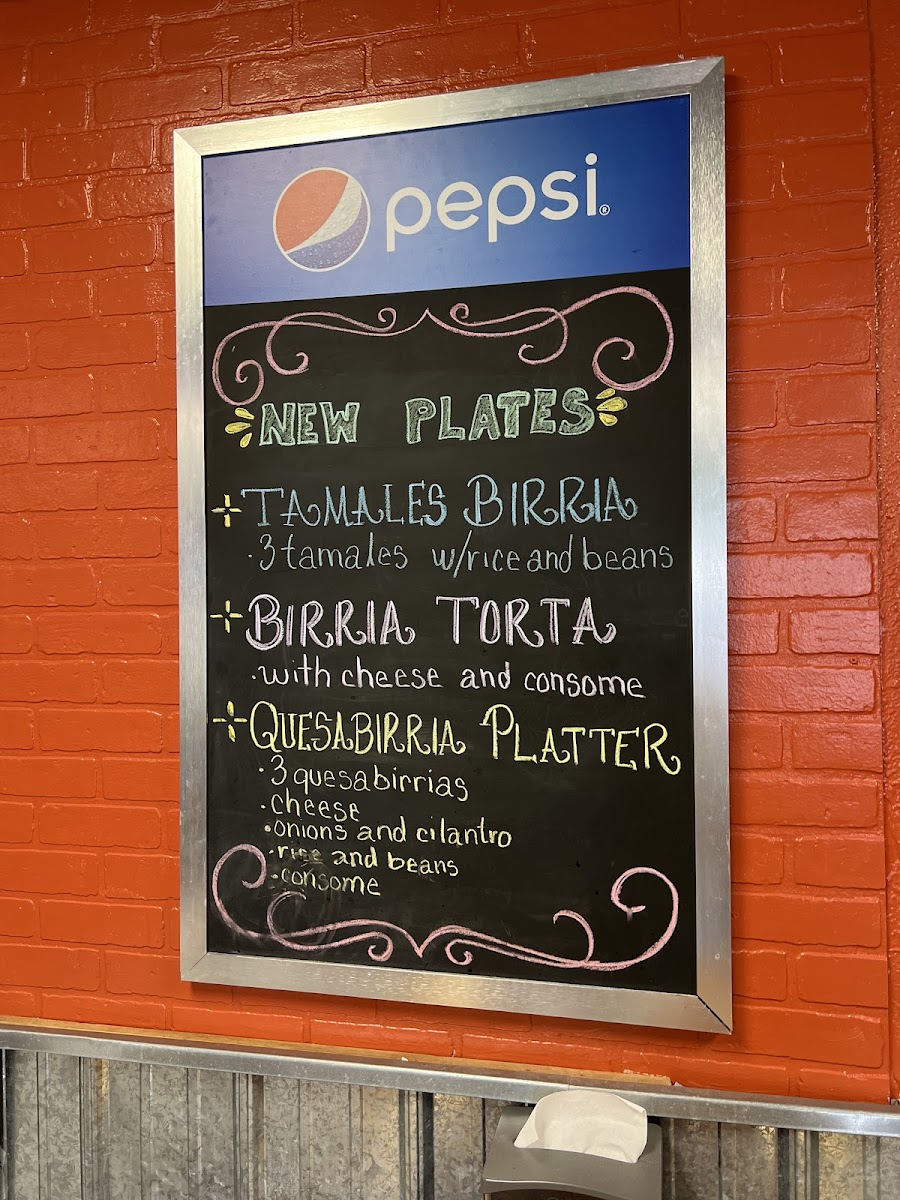 pepsi®
NEW PLATES
TAMALES BIRRIA
·3 tamales w/rice and beans
BIRRIA TORTA
·with cheese and consome
QUESABIRRIA PLATTER
·3 quesabirrias
·cheese
·onions and cilantro
·rice and beans
·consome